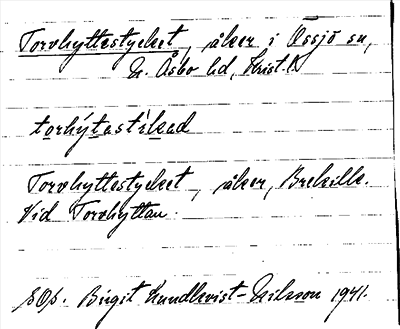 Torvhyttestycket, åker i Össjö sn,
N. Åsbo hd, Krist. l.
torhýtastikad
Torvhyttestycket, åker, Brekille.
Vid Torvhyttan.
Birgit Lundkvist-Nilsson 1941.